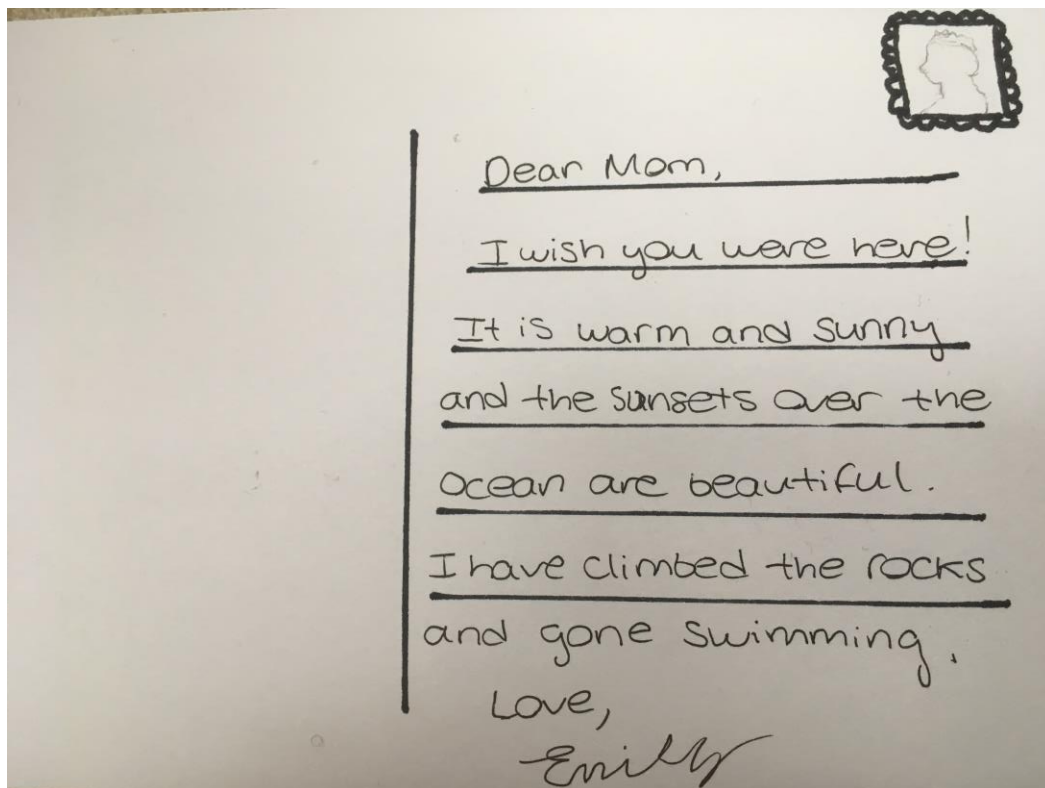 Dear Mom,
I wish you were here!
It is warm and sunny
and the sunsets over the
ocean are beautiful.
I have climbed the rocks
and gone swimming.
Love,
Emily